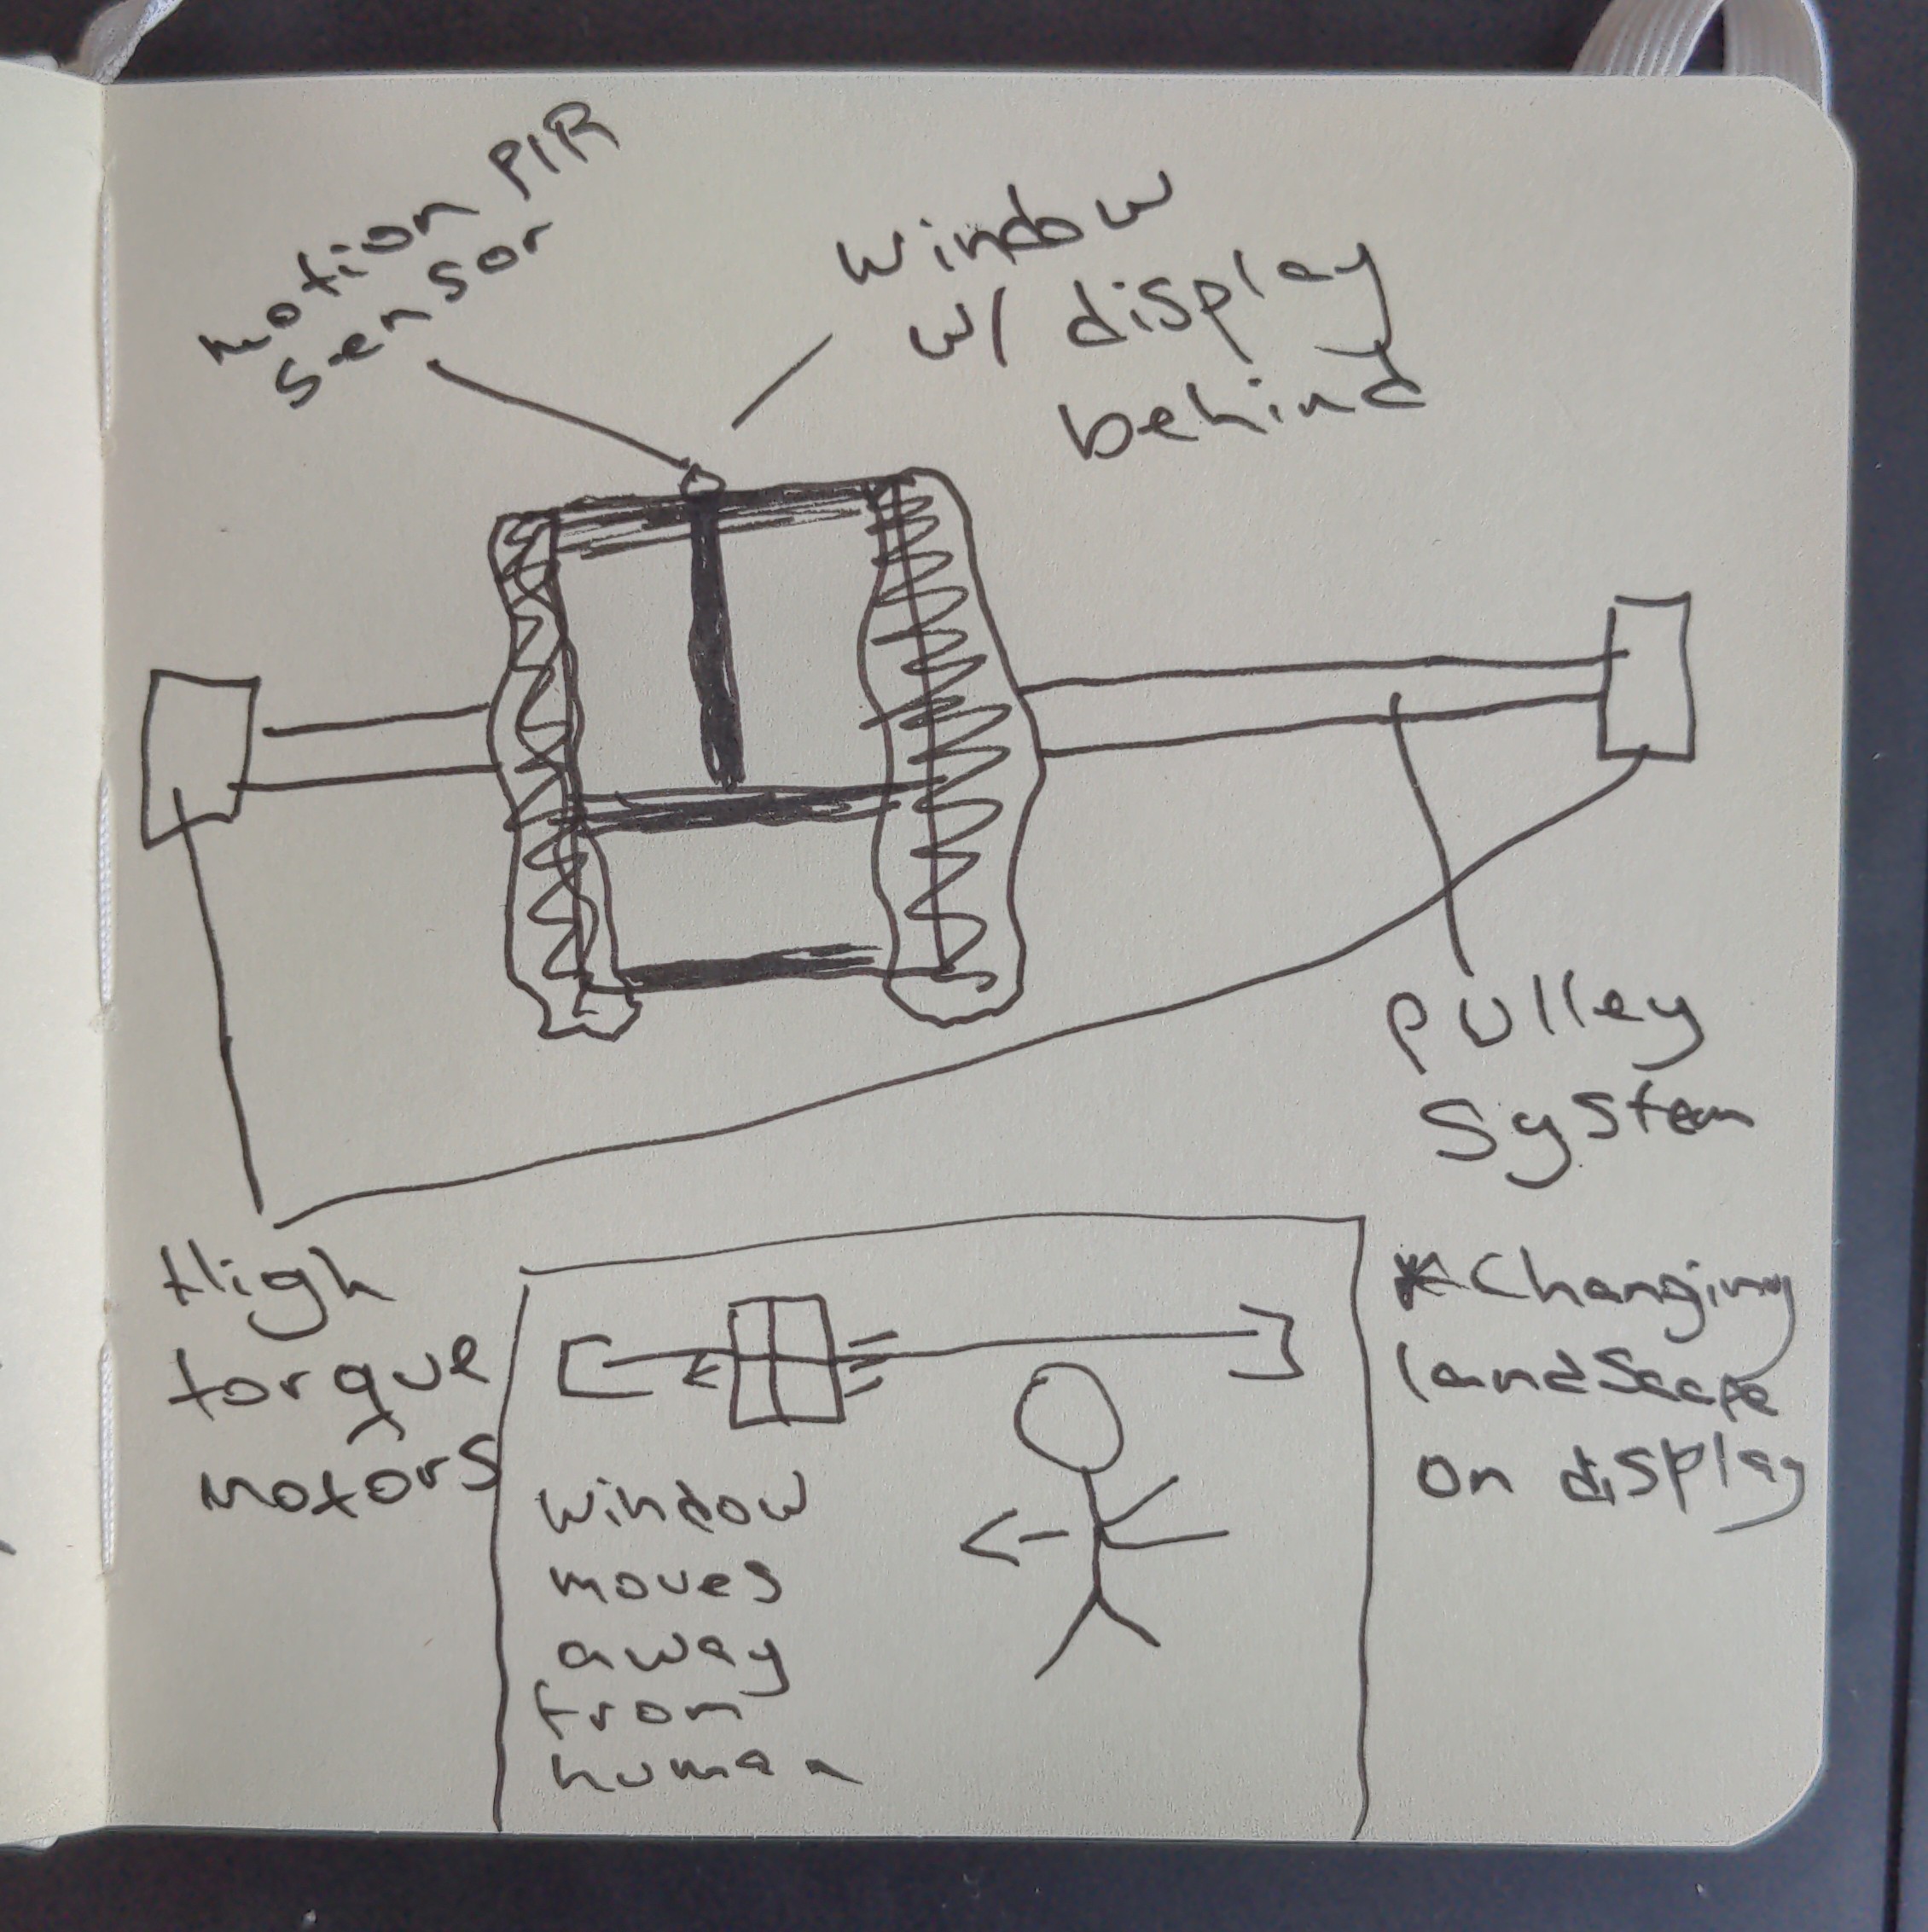 motion PIR
sensor
window
w/ display
behind
pulley
system
High
torque
motors
*Changing
landscape
on display
window
moves
away
from
human